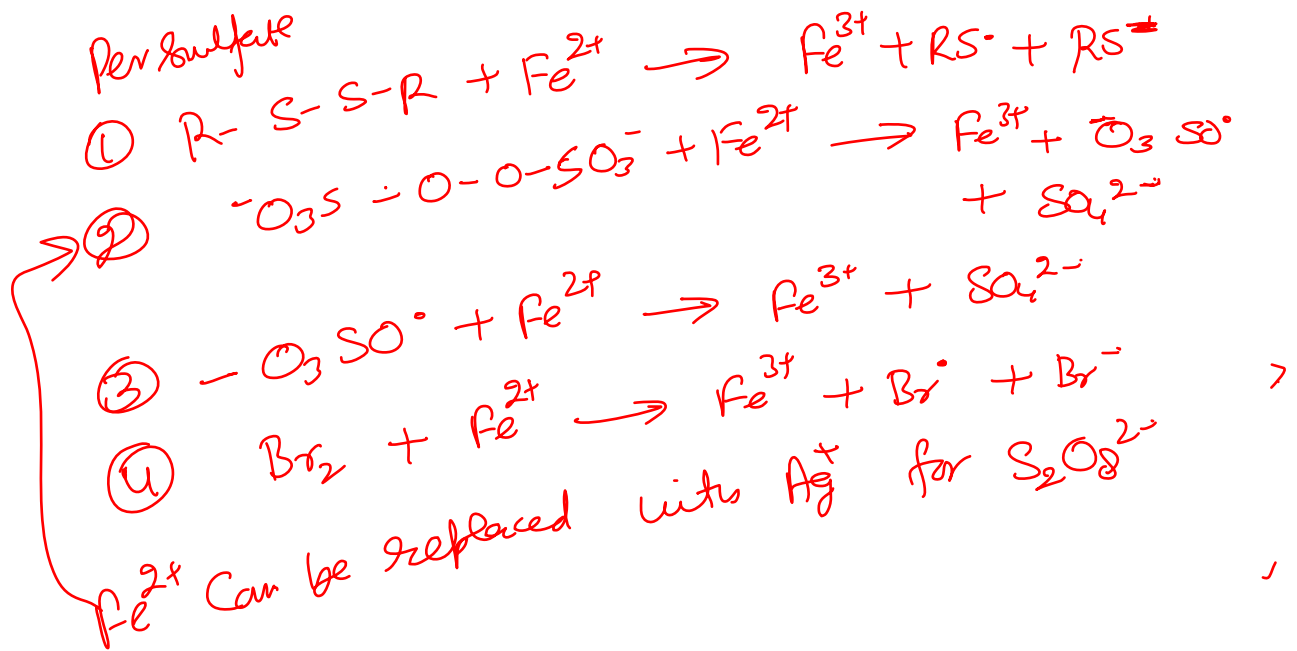 Persulfate
① R-S-S-R + Fe²⁺ → Fe³⁺ + RS• + RS⁻
② ⁻O₃S-O-O-SO₃⁻ + Fe²⁺ → Fe³⁺ + ⁻O₃SO•
+ SO₄²⁻
③ -O₃SO• + Fe²⁺ → Fe³⁺ + SO₄²⁻
④ Br₂ + Fe²⁺ → Fe³⁺ + Br• + Br⁻
Fe²⁺ Can be replaced with Ag⁺ for S₂O₈²⁻